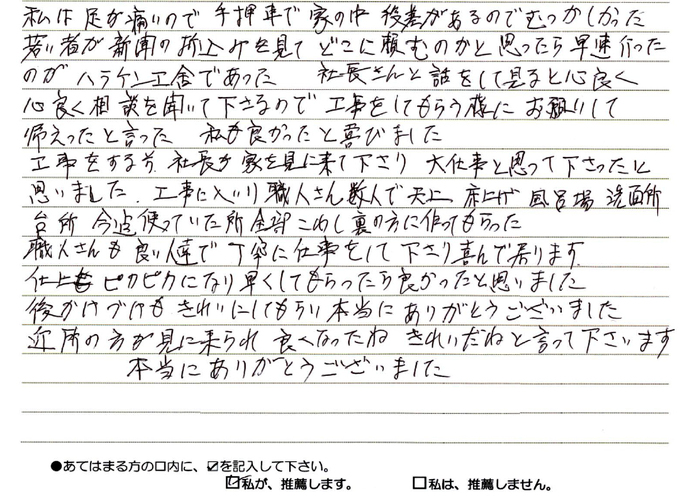 私は足が痛いので手押車で家の中段差があるのでむつかしかった
若い者が新聞の折込みを見てどこに頼むのかと思ったら早速行った
のがハラケン工舎であった 社長さんと話をして見ると心良く
心良く相談を聞いて下さるので工事をしてもらう様にお願いして
帰えったと言った 私も良かったと喜びました
工事をする前、社長が家を見に来て下さり大仕事と思って下さったと
思いました。工事に入り職人さん数人で天上、床上げ 風呂場 洗面所
台所 今迄使っていた所全部こわし裏の方に作ってもらった
職人さんも良い人達で丁寧に仕事をして下さり喜んで居ります
仕上もピカピカになり早くしてもらったら良かったと思いました
後かたづけもきれいにしてもらい本当にありがとうございました
近所の方が見に来られ良くなったね きれいだねと言って下さいます
本当にありがとうございました
●あてはまる方の口内に、☑を記入して下さい。
☑私が、推薦します。 □私は、推薦しません。